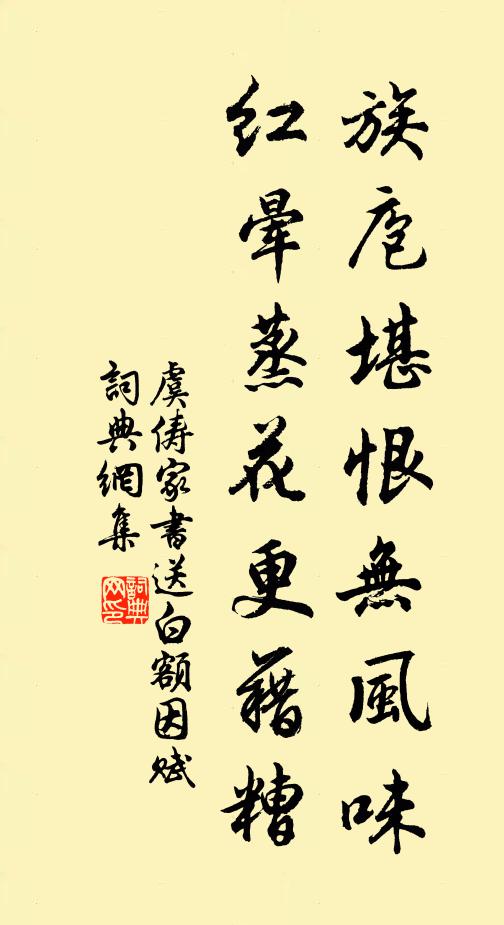 族庖堪恨無風味
紅暈蒸花更藉糟
虞儔家書送白額因賦
詞典網集
詞典網印